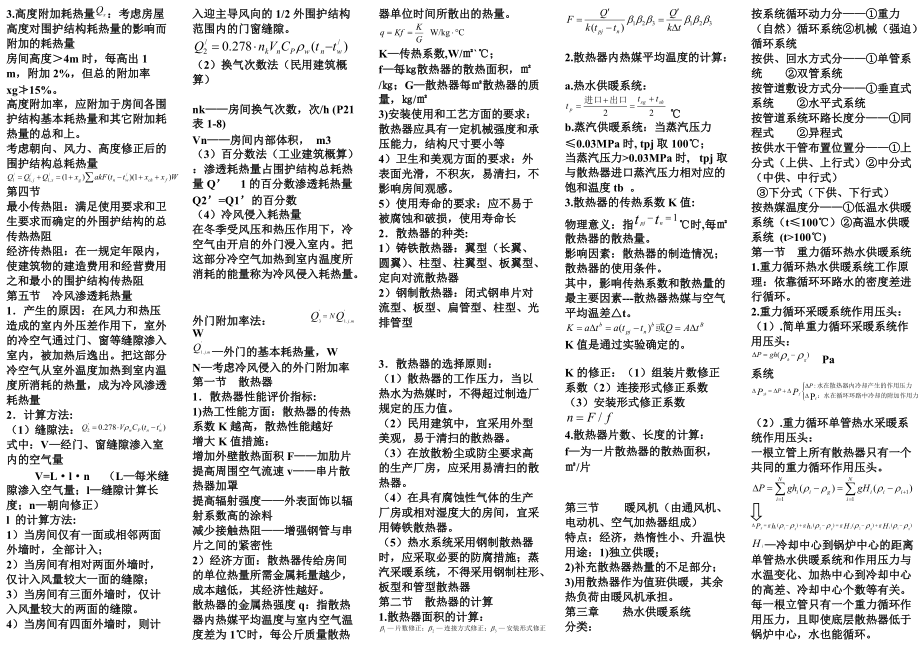 3.高度附加耗热量Q′：考虑房屋
高度对围护结构耗热量的影响而
附加的耗热量
房间高度＞4m时，每高出1
m，附加2%，但总的附加率
xg≯15%。
高度附加率，应附加于房间各围
护结构基本耗热量和其它附加耗
热量的总和上。
考虑朝向、风力、高度修正后的
围护结构总耗热量
第四节
最小传热阻：满足使用要求和卫
生要求而确定的外围护结构的总
传热热阻
经济传热阻：在一规定年限内，
使建筑物的建造费用和经营费用
之和最小的围护结构传热阻
第五节　冷风渗透耗热量
1．产生的原因：在风力和热压
造成的室内外压差作用下，室外
的冷空气通过门、窗等缝隙渗入
室内，被加热后逸出。把这部分
冷空气从室外温度加热到室内温
度所消耗的热量，成为冷风渗透
耗热量
2．计算方法:
（1）缝隙法: Q₂′=0.278·VρwCP(tn-tw′)
式中：V—经门、窗缝隙渗入室
内的空气量
V=L·l·n　（L—每米缝
隙渗入空气量；l—缝隙计算长
度；n—朝向修正）
l 的计算方法:
1）当房间仅有一面或相邻两面
外墙时，全部计入；
2）当房间有相对两面外墙时，
仅计入风量较大一面的缝隙；
3）当房间有三面外墙时，仅计
入风量较大的两面的缝隙。
4）当房间有四面外墙时，则计
入迎主导风向的1/2外围护结构
范围内的门窗缝隙。
Q₂′=0.278·nkVnCPρw(tn-tw′)
（2）换气次数法（民用建筑概
算）
nk——房间换气次数，次/h (P21
表1-8)
Vn——房间内部体积， m3
（3）百分数法（工业建筑概算）
：渗透耗热量占围护结构总耗热
量Q′　1 的百分数渗透耗热量
Q2′=Q1′的百分数
（4）冷风侵入耗热量
在冬季受风压和热压作用下，冷
空气由开启的外门浸入室内。把
这部分冷空气加热到室内温度所
消耗的能量称为冷风侵入耗热量。
外门附加率法: Q₃=NQ₁.j.m
W
Q₁.j.m—外门的基本耗热量，W
N—考虑冷风侵入的外门附加率
第一节　散热器
1．散热器性能评价指标:
1)热工性能方面：散热器的传热
系数K越高，散热性能越好
增大K值措施:
增加外壁散热面积F——加肋片
提高周围空气流速v——串片散
热器加罩
提高辐射强度——外表面饰以辐
射系数高的涂料
减少接触热阻——增强钢管与串
片之间的紧密性
2）经济方面：散热器传给房间
的单位热量所需金属耗量越少，
成本越低，其经济性越好。
散热器的金属热强度q：指散热
器内热媒平均温度与室内空气温
度差为1℃时，每公斤质量散热
器单位时间所散出的热量。
q=Kf=K/G W/kg·℃
K—传热系数,W/㎡·℃；
f—每㎏散热器的散热面积，㎡
/㎏；G—散热器每㎡散热器的质
量，㎏/㎡
3)安装使用和工艺方面的要求：
散热器应具有一定机械强度和承
压能力，结构尺寸要小等
4）卫生和美观方面的要求：外
表面光滑，不积灰，易清扫，不
影响房间观感。
5）使用寿命的要求：应不易于
被腐蚀和破损，使用寿命长
2．散热器的种类:
1）铸铁散热器：翼型（长翼、
圆翼）、柱型、柱翼型、板翼型、
定向对流散热器
2）钢制散热器：闭式钢串片对
流型、板型、扁管型、柱型、光
排管型
3．散热器的选择原则:
（1）散热器的工作压力，当以
热水为热媒时，不得超过制造厂
规定的压力值。
（2）民用建筑中，宜采用外型
美观，易于清扫的散热器。
（3）在放散粉尘或防尘要求高
的生产厂房，应采用易清扫的散
热器。
（4）在具有腐蚀性气体的生产
厂房或相对湿度大的房间，宜采
用铸铁散热器。
（5）热水系统采用钢制散热器
时，应采取必要的防腐措施；蒸
汽采暖系统，不得采用钢制柱形、
板型和管型散热器
第二节　散热器的计算
1.散热器面积的计算：
β₁—片数修正; β₂—连接方式修正; β₃—安装形式修正
F=Q′/k(tpj-tn) β₁β₂β₃=Q′/kΔt β₁β₂β₃
2.散热器内热媒平均温度的计算:
a.热水供暖系统:
tpj=(进口+出口)/2=(tsg+tsh)/2 ℃
b.蒸汽供暖系统：当蒸汽压力
≤0.03MPa时, tpj 取100℃；
当蒸汽压力>0.03MPa时， tpj 取
与散热器进口蒸汽压力相对应的
饱和温度tb 。
3.散热器的传热系数K值:
物理意义：指tpj-tn=1℃时,每㎡
散热器的散热量。
影响因素：散热器的制造情况；
散热器的使用条件。
其中，影响传热系数和散热量的
最主要因素---散热器热媒与空气
平均温差△t。
K=aΔt^b=a(tpj-tn)^b或Q=AΔt^B
K值是通过实验确定的。
K的修正：（1）组装片数修正
系数（2）连接形式修正系数
（3）安装形式修正系数
n=F/f
4.散热器片数、长度的计算:
f—为一片散热器的散热面积，
㎡/片
第三节　暖风机（由通风机、
电动机、空气加热器组成）
特点：经济，热惰性小、升温快
用途：1)独立供暖；
2)补充散热器热量的不足部分；
3)用散热器作为值班供暖，其余
热负荷由暖风机承担。
第三章　热水供暖系统
分类：
按系统循环动力分——①重力
（自然）循环系统②机械（强迫）
循环系统
按供、回水方式分——①单管系
统　②双管系统
按管道敷设方式分——①垂直式
系统　②水平式系统
按管道系统环路长度分——①同
程式　②异程式
按供水干管布置位置分——①上
分式（上供、上行式）②中分式
（中供、中行式）
③下分式（下供、下行式）
按热媒温度分——①低温水供暖
系统（t≤100℃）②高温水供暖
系统 (t>100℃)
第一节　重力循环热水供暖系统
1.重力循环热水供暖系统工作原
理：依靠循环环路水的密度差进
行循环。
2.重力循环采暖系统作用压头:
（1）.简单重力循环采暖系统作
用压头:
ΔP=gh(ρh-ρg) Pa
系统
ΔP：水在散热器内冷却产生的作用压力
ΔPf：水在循环环路中冷却的附加作用力
（2）.重力循环单管热水采暖系
统作用压头:
一根立管上所有散热器只有一个
共同的重力循环作用压头。
Hi—冷却中心到锅炉中心的距离
单管热水供暖系统和作用压力与
水温变化、加热中心到冷却中心
的高差、冷却中心个数等有关。
每一根立管只有一个重力循环作
用压力，且即使底层散热器低于
锅炉中心，水也能循环。